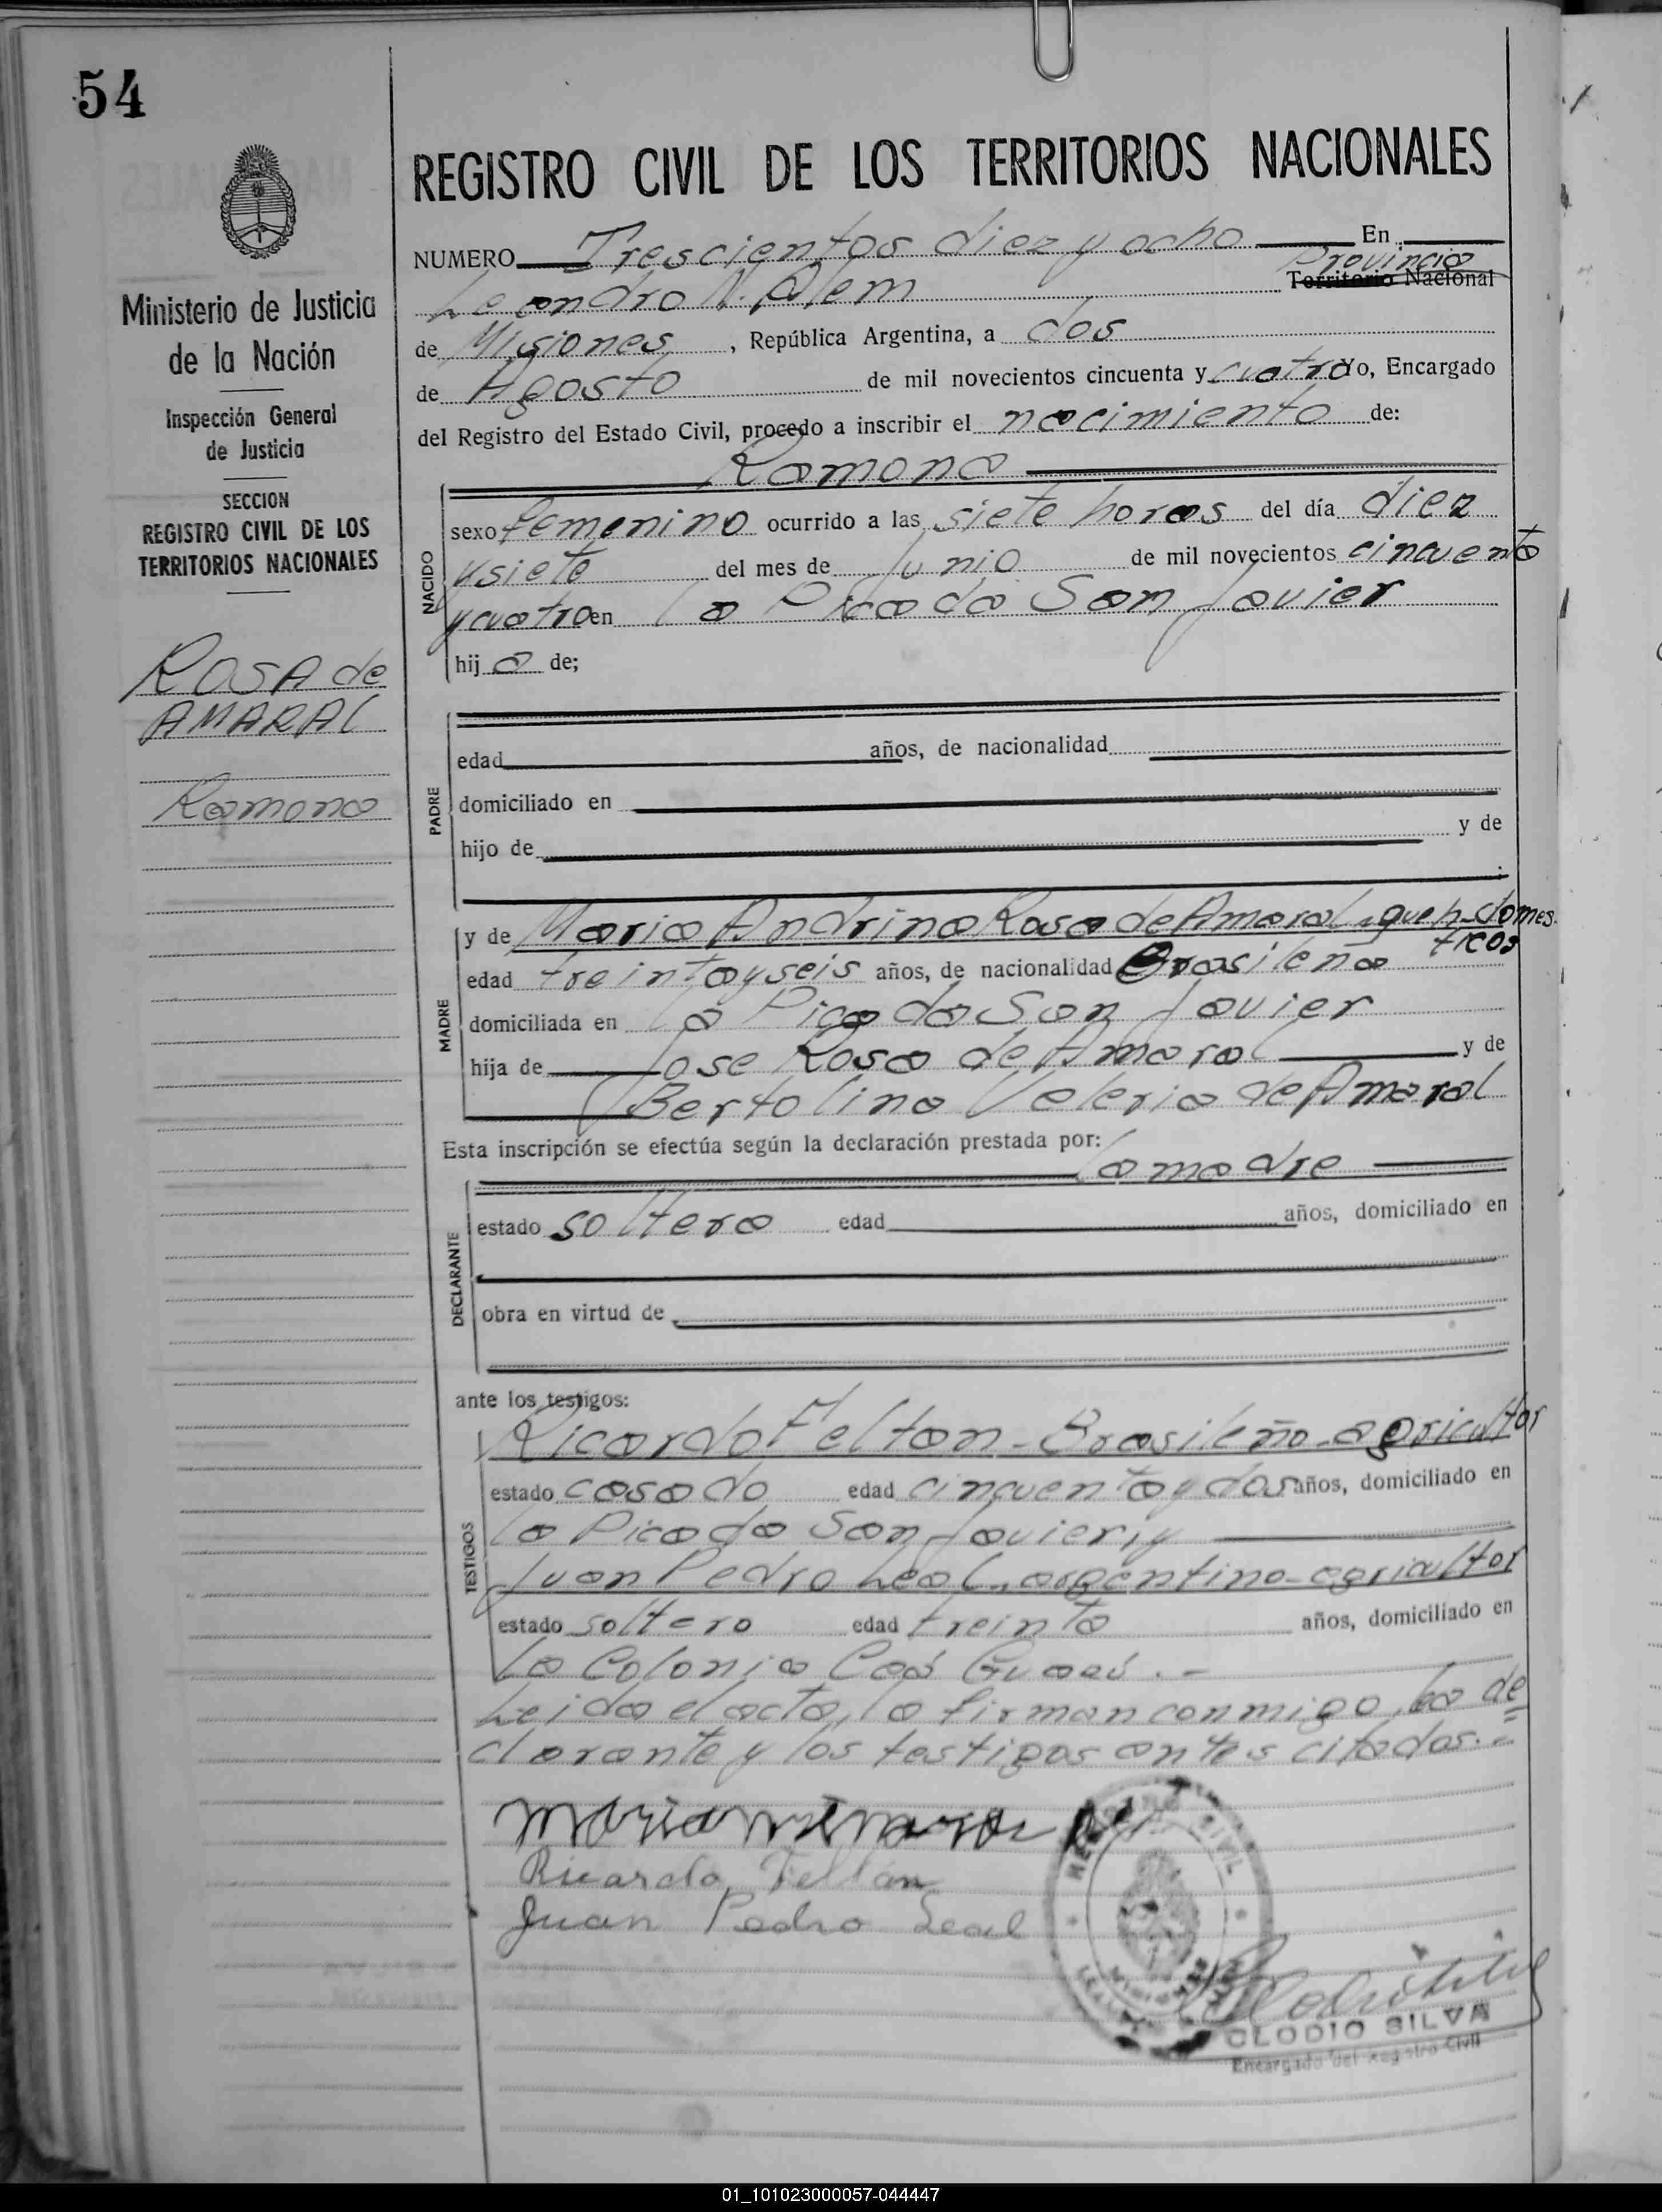 54
REGISTRO CIVIL DE LOS TERRITORIOS NACIONALES
NUMERO Trescientos diez y ocho En
Provincia
Leandro N. Alem Territorio Nacional
de Misiones, República Argentina, a dos
de Agosto de mil novecientos cincuenta y cuatro Yo, Encargado
del Registro del Estado Civil, procedo a inscribir el nacimiento de:
Ramona
Ministerio de Justicia
de la Nación
Inspección General
de Justicia
SECCION
REGISTRO CIVIL DE LOS
TERRITORIOS NACIONALES
ROSA de
AMARAL
Ramona
NACIDO
sexo femenino ocurrido a las siete horas del día diez
y siete del mes de Junio de mil novecientos cincuenta
y cuatro en la Picada San Javier
hij a de;
PADRE
edad años, de nacionalidad
domiciliado en
hijo de y de
MADRE
y de Maria Andrina Rosa de Amaral - queh-domes
ticos
edad treinta y seis años, de nacionalidad Brasileña
domiciliada en la Picada San Javier
hija de Jose Rosa de Amaral y de
Bertolina Valeria de Amaral
Esta inscripción se efectúa según la declaración prestada por:
la madre
DECLARANTE
estado soltera edad años, domiciliado en
obra en virtud de
ante los testigos:
TESTIGOS
Ricardo Feltan - Brasileño - agricultor
estado casado edad cincuenta y dos años, domiciliado en
la Picada San Javier, y
Juan Pedro Leal - argentino - agricultor
estado soltero edad treinta años, domiciliado en
La Colonia Caá Guazú. -
Leida el acta, la firman conmigo, la de
clarante y los testigos antes citados. =
Ricardo Feltan
Juan Pedro Leal
REGISTRO CIVIL
MISIONES
CLODIO SILVA
Encargado del Registro Civil
01_101023000057-044447